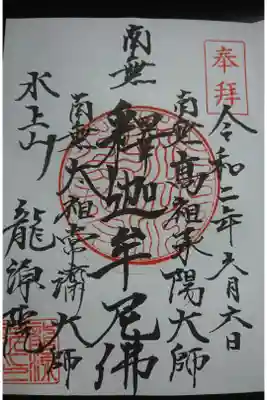 奉拝
令和二年五月六日
南無高祖承陽大師
南無釋迦牟尼佛
南無太祖常濟大師
水上山